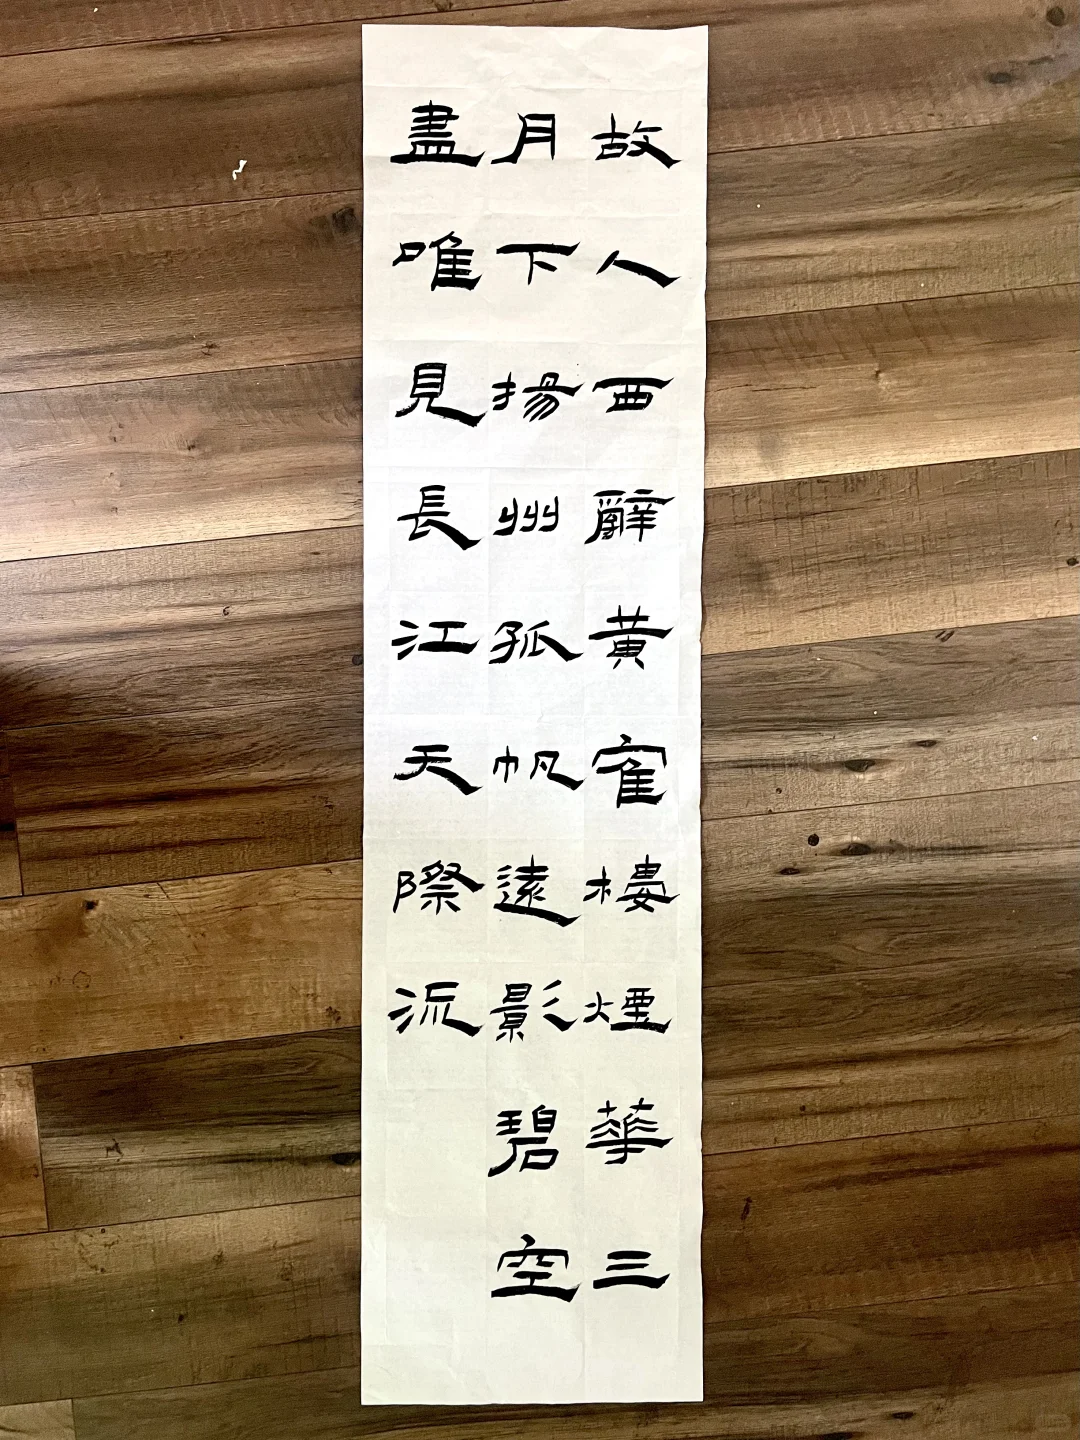 故人西辭黃隺樓煙華三
月下揚州孤帆遠影碧空
盡唯見長江天際流